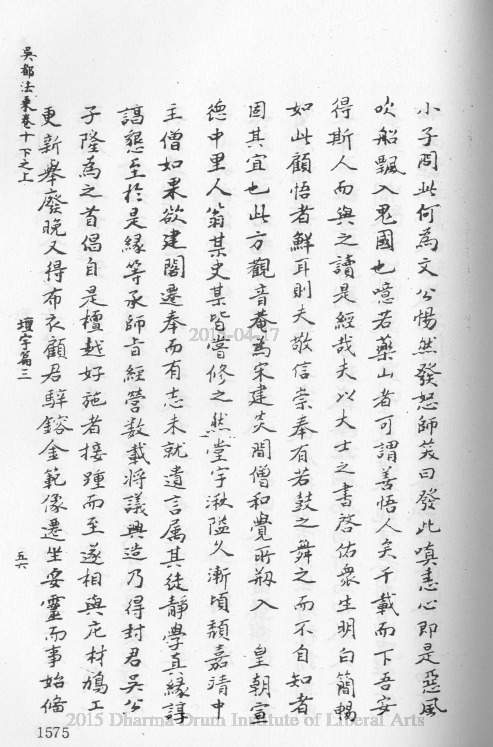 小子問此何為文公惕然發怒師笑曰發此嗔恚心即是惡風
吹船飄入鬼國也噫若藥山者可謂善悟人矣千載而下吾安
得斯人而與之讀是經哉夫以大士之書啓佑衆生明白簡暢
如此顧悟者鮮耳則夫敬信崇奉有若鼓之舞之而不自知者
固其宜也此方觀音菴為宋建炎間僧和覺所剏入 皇朝宣
德中里人翁某史某皆嘗修之然堂宇湫隘久漸頃頹嘉靖中
主僧如果欲建閣遷奉而有志未就遺言属其徒靜學真緣諄
謁懇至於是緣等承師旨經營数載將議興造乃得封君吳公
子隆為之首倡自是檀越好施者接踵而至遂相與庀材鳩工
更新舉廢晚又得布衣顧君騂鎔金範像遷坐妥靈而事始備
吳都法乗卷十下之上
壇宇篇三
五六
1575
2014-04-17
2015 Dharma Drum Institute of Liberal Arts